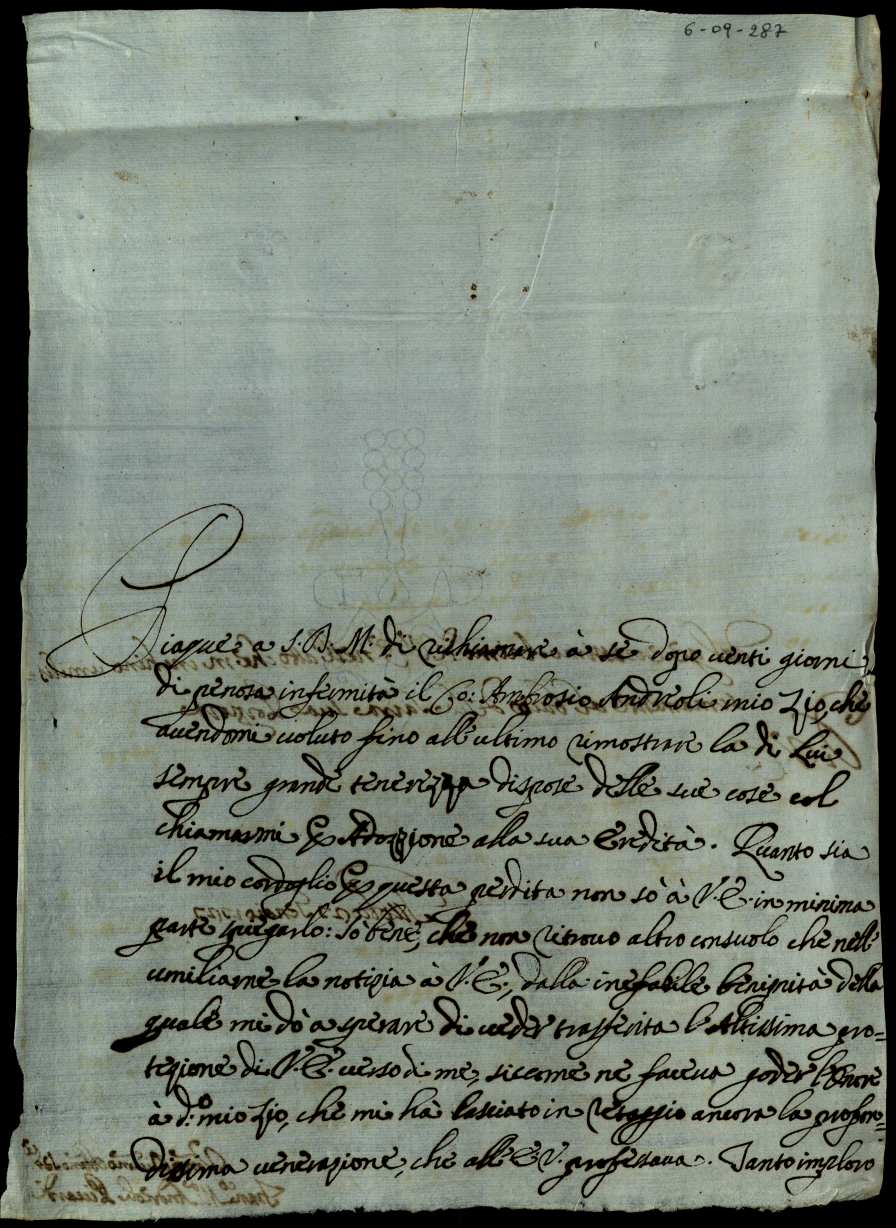 6-09-287
Piaque a S. D. M. di richiamare à se dopo venti giorni
di penosa infermità il Co: Ambrosio Andreoli mio Zio, che
avendomi voluto fino all'ultimo rimostrare la di Lui
sempre grande tenerezza dispose delle sue cose col
chiamarmi per Adozzione alla sua Eredità. Quanto sia
il mio cordoglio per questa perdita non sò à V. E. in minima
parte spiegarlo: sò bene, che non ritrovo altro consuolo che nell'
umiliarne la notizia à V. E., dalla inefabile benignità della
quale mi dò a sperare di veder trasferita l'Altissima pro=
tezione di V. E. verso di me, siccome ne faceva goder l'Onore
à d.o mio Zio, che mi hà lasciato in retaggio ancora la profon=
dissima venerazione, che all'E. V. professava. Tanto imploro